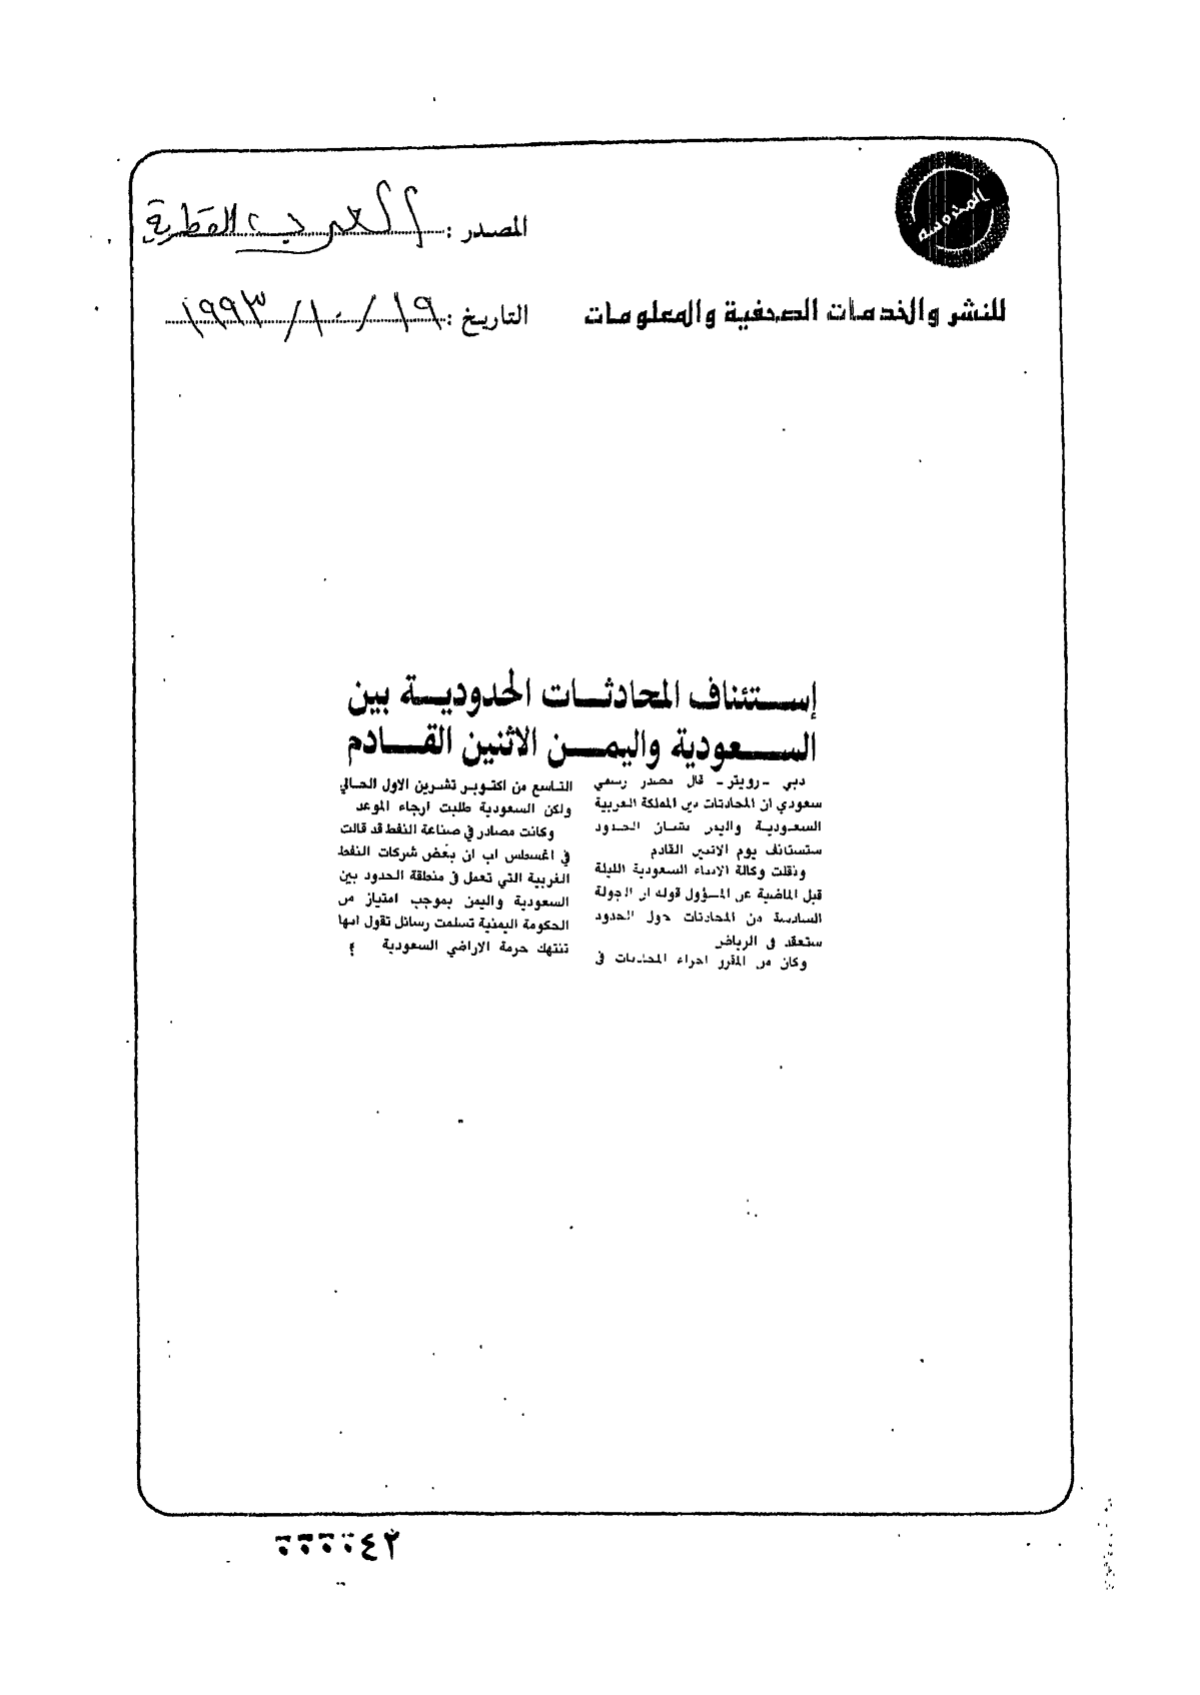 المحروسة
المصدر : العرب القطرية
للنشر والخدمات الصحفية والمعلومات
التاريخ : ١٩ / ١٠ / ١٩٩٣
إستئناف المحادثات الحدودية بين
السعودية واليمن الاثنين القادم
دبي - رويتر - قال مصدر رسمي
سعودي ان المحادثات بين المملكة العربية
السعودية واليمن بشان الحدود
ستستانف يوم الاثنين القادم
ونقلت وكالة الانباء السعودية الليلة
قبل الماضية عن المسؤول قوله ان الجولة
السادسة من المحادثات حول الحدود
ستعقد في الرياض
وكان من المقرر اجراء المحادثات في
التاسع من اكتوبر تشرين الاول الحالي
ولكن السعودية طلبت ارجاء الموعد
وكانت مصادر في صناعة النفط قد قالت
في اغسطس اب ان بعض شركات النفط
الغربية التي تعمل في منطقة الحدود بين
السعودية واليمن بموجب امتياز من
الحكومة اليمنية تسلمت رسائل تقول انها
تنتهك حرمة الاراضي السعودية